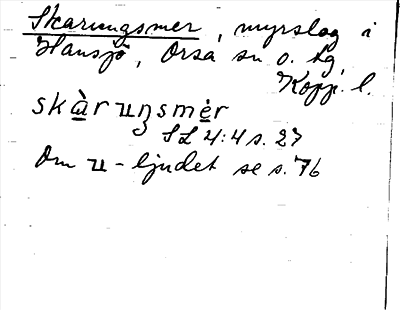 Skarungsmer, myrslog i
Hansjö, Orsa sn o. tg,
Kopp. l.
skàruŋsmér
SL 4:4 s. 27
Om u-ljudet se s. 76